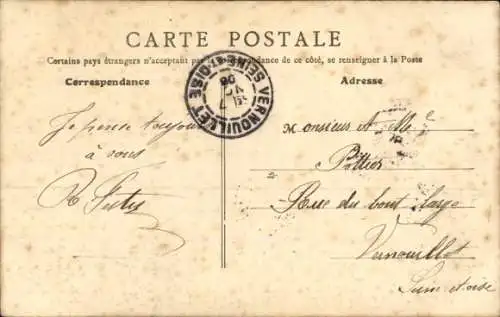 CARTE POSTALE
Certains pays étrangers n'acceptant pas la correspondance de ce côté, se renseigner à la Poste
Correspondance
Adresse
VERNOUILLET
SEINE-ET-OISE
08
Je pense toujours
à vous
Monsieur A. Me
Pottier
Rue du bout large
Vernouillet
Seine et oise